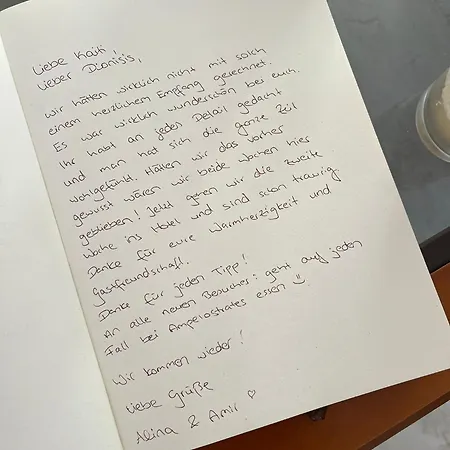 Liebe Kaiti,
Lieber Dionisis,
Wir hätten wirklich nicht mit solch
einem herzlichem Empfang gerechnet.
Es war wirklich wunderschön bei euch.
Ihr habt an jedes Detail gedacht
und man hat sich die ganze Zeit
wohlgefühlt. Hätten wir das vorher
gewusst wären wir beide Wochen hier
geblieben! Jetzt gehen wir die zweite
Woche ins Hotel und sind schon traurig.
Danke für eure Warmherzigkeit und
Gastfreundschaft.
Danke für jeden Tipp!
An alle neuen Besucher: geht auf jeden
Fall bei Ampelostrates essen ☺.
Wir kommen wieder!
Liebe Grüße
Alina & Amir ♡